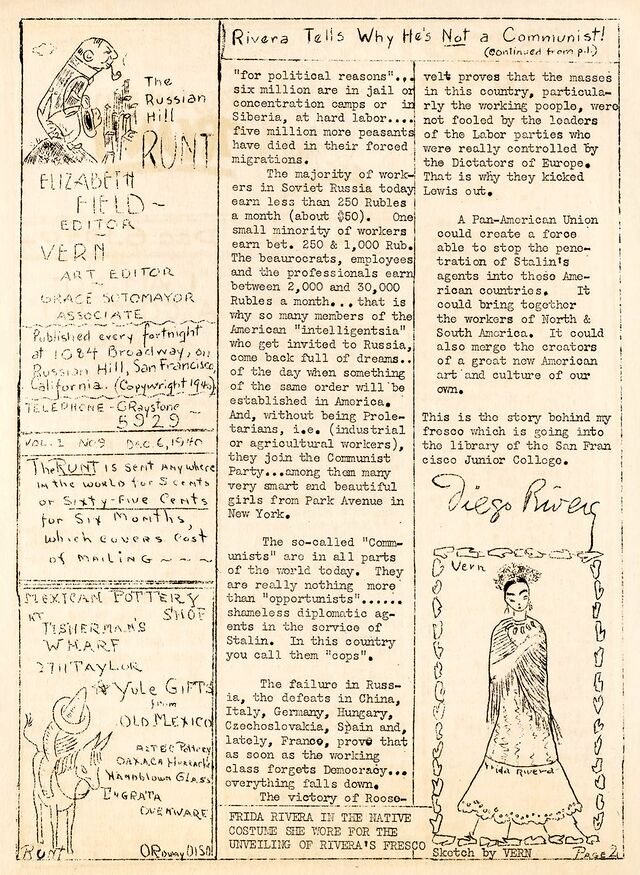 The
Russian
Hill
RUNT
ELIZABETH
FIELD-
EDITOR
VERN
ART EDITOR
GRACE SOTOMAYOR
ASSOCIATE
Published every fortnight
at 1084 Broadway, on
Russian Hill, San Francisco,
California. (Copywright 1940)
TELEPHONE - GRaystone
5929
VOL. 1 No 9 DEC 6, 1940
The RUNT is sent anywhere
in the world for 5 cents
or Sixty-Five Cents
for Six Months,
which covers cost
of mailing
MEXICAN POTTERY
SHOP
AT
FISHERMAN'S
WHARF
2711 TAYLOR
Yule Gifts
from
OLD MEXICO
AZTEC Pottery
OAXACA Huarache
Handblown Glass
INGRATA
OVENWARE
RUNT
ORdway 0150
Rivera Tells Why He's Not a Communist!
(continued from p.1.)
"for political reasons"...
six million are in jail or
concentration camps or in
Siberia, at hard labor....
five million more peasants
have died in their forced
migrations.
The majority of work-
ers in Soviet Russia today
earn less than 250 Rubles
a month (about $50). One
small minority of workers
earn bet. 250 & 1,000 Rub.
The beaurocrats, employees
and the professionals earn
between 2,000 and 30,000
Rubles a month...that is
why so many members of the
American "intelligentsia"
who get invited to Russia,
come back full of dreams..
of the day when something
of the same order will be
established in America.
And, without being Prole-
tarians, i.e. (industrial
or agricultural workers),
they join the Communist
Party...among them many
very smart and beautiful
girls from Park Avenue in
New York.
The so-called "Comm-
unists" are in all parts
of the world today. They
are really nothing more
than "opportunists"......
shameless diplomatic ag-
ents in the service of
Stalin. In this country
you call them "cops".
The failure in Russ-
ia, the defeats in China,
Italy, Germany, Hungary,
Czechoslovakia, Spain and,
lately, France, prove that
as soon as the working
class forgets Democracy...
everything falls down.
The victory of Roose-
velt proves that the masses
in this country, particula-
rly the working people, were
not fooled by the leaders
of the Labor parties who
were really controlled by
the Dictators of Europe.
That is why they kicked
Lewis out.
A Pan-American Union
could create a force
able to stop the pene-
tration of Stalin's
agents into those Ame-
rican countries. It
could bring together
the workers of North &
South America. It could
also merge the creators
of a great new American
art and culture of our
own.
This is the story behind my
fresco which is going into
the library of the San Fran
cisco Junior College.
Diego Rivera
Vern
Frida Rivera
FRIDA RIVERA IN THE NATIVE
COSTUME SHE WORE FOR THE
UNVEILING OF RIVERA'S FRESCO
Sketch by VERN
PAGE 2